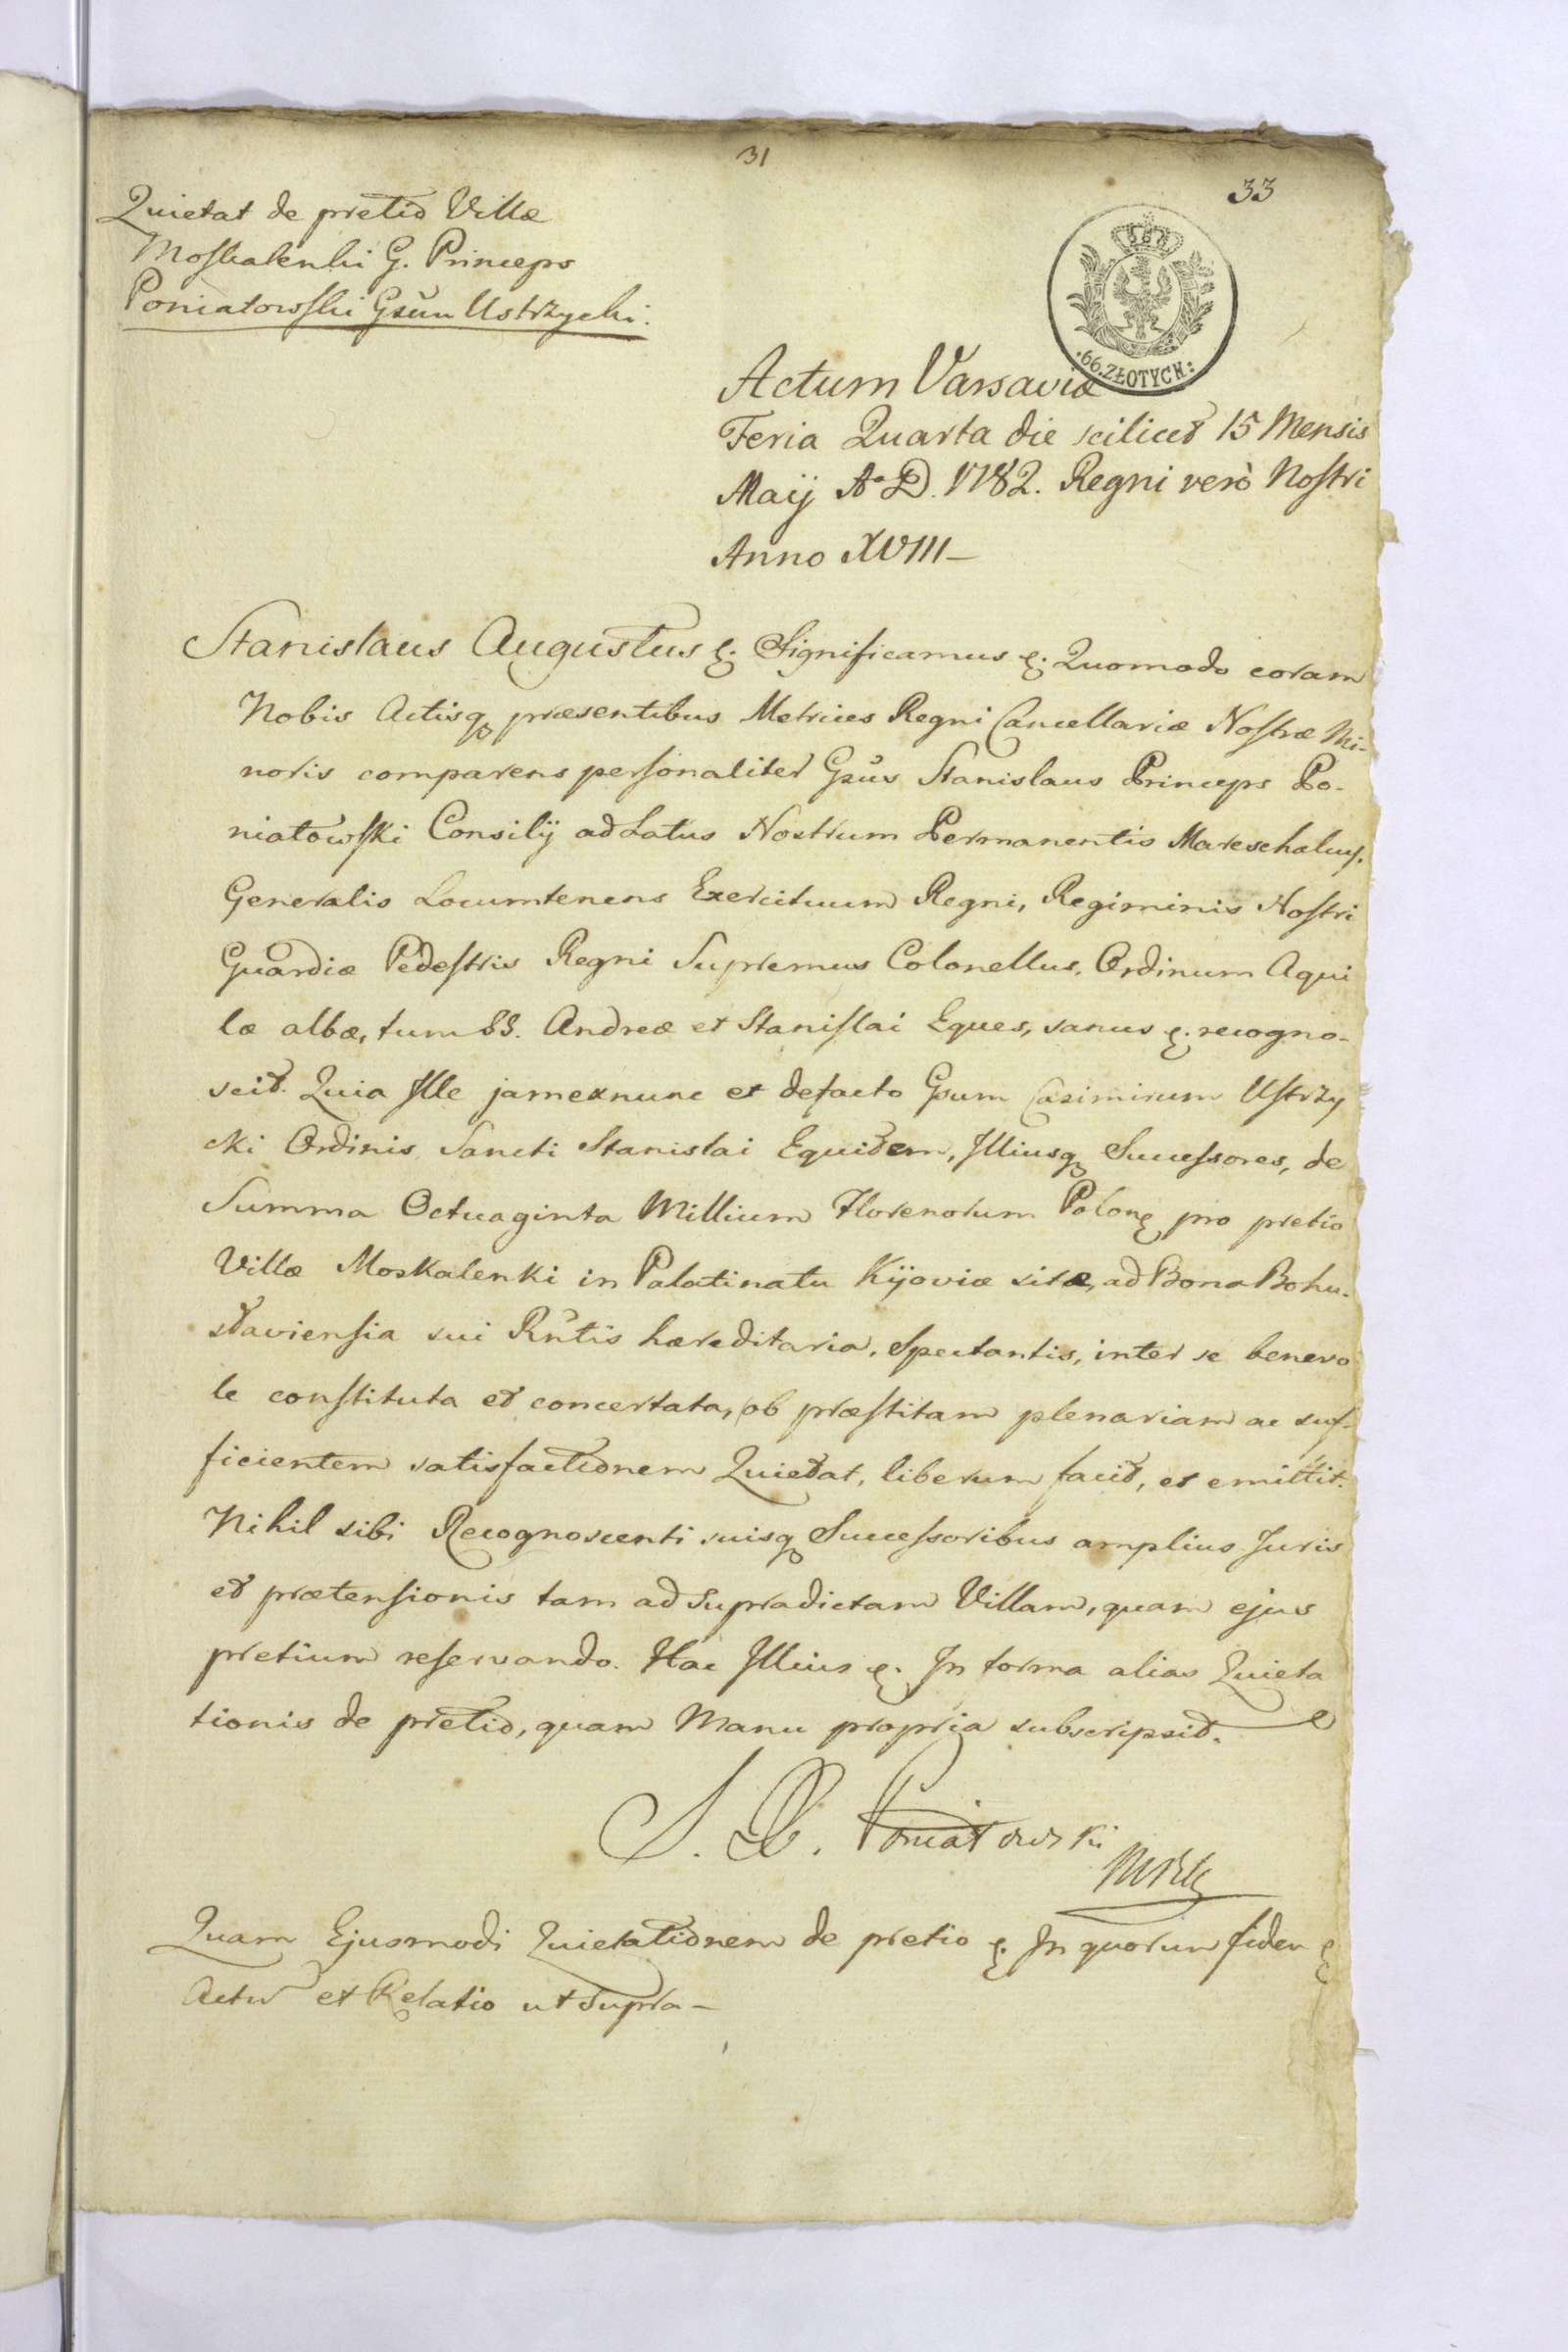 31
33
Quietat de pretio Villæ
Moskalenki G. Princeps
Poniatowski Gsum Ustrzycki.
.66.ZŁOTYCH:
Actum Varsaviæ
Feria Quarta die scilicet 15 Mensis
Maij A° D. 1782. Regni verò Nostri
Anno XVIII—
Stanislaus Augustus &. Significamus &. Quomodo coram
Nobis Actisq præsentibus Metrices Regni Cancellariæ Nostræ Mi-
noris comparens personaliter Gsus Stanislaus Princeps Po-
niatowski Consilij ad Latus Nostrum Permanentis Mareschalus,
Generalis Locumtenens Exercituum Regni, Regiminis Nostri
Guardiæ Pedestris Regni Supremus Colonellus, Ordinum Aqui
læ albæ, tum SS. Andreæ et Stanislai Eques, sanus &. recogno-
scit. Quia Ille jamexnunc et defacto Gsum Casimirum Ustrzy
cki Ordinis Sancti Stanislai Equitem, Illiusq Successores, de
Summa Octuaginta Millium Florenorum Polon& pro pretio
Villæ Moskalenki in Palatinatu Kijoviæ sitæ, ad Bona Bohu-
slaviensia sui Rntis hæreditaria, Spectantis, inter se benevo
le constituta et concertata, ob præstitam plenariam ac suf-
ficientem satisfactionem Quietat, liberum facit, et emittit.
Nihil sibi Recognoscenti suisq Successoribus amplius Juris
et prætensionis tam ad Supradictam Villam, quam ejus
pretium reservando. Hac Illius &. In forma alias Quieta
tionis de pretio, quam Manu propria subscripsit.
S. P. Poniatowski
Quam Ejusmodi Quietationem de pretio &. In quorum fidem &
Actum et Relatio ut Supra—